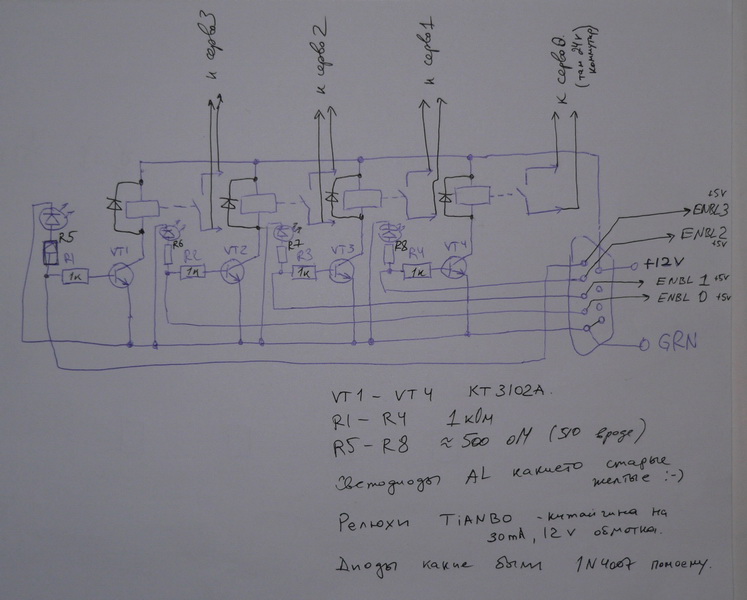 к серво3
к серво2
к серво1
к серво0
(там 24v
коммутир)
+5v
ENBL3
ENBL2
+5v
+12V
ENBL 1 +5v
ENBL 0 +5v
GRN
R5
R1
1к
VT1
R6
R2
1к
VT2
R7
R3
1к
VT3
R8
R4
1к
VT4
VT1 - VT4 KT3102A.
R1 - R4 1кОм
R5 - R8 ≈ 500 оМ (510 вроде)
Светодиоды AL какието старые
желтые :-)
Релюхи TiANBO - китайчина на
30mA, 12v обмотка.
Диоды какие были 1N4007 помоему.